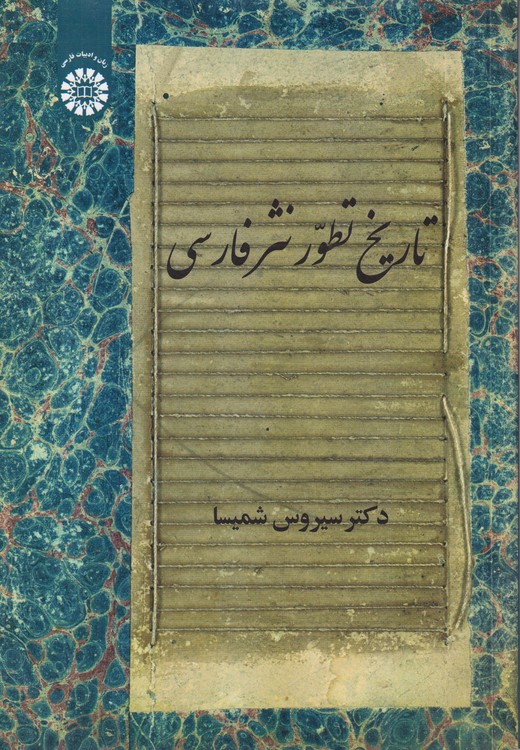 زبان و ادبیات فارسی
تاریخ تطوّر نثر فارسی
دکتر سیروس شمیسا